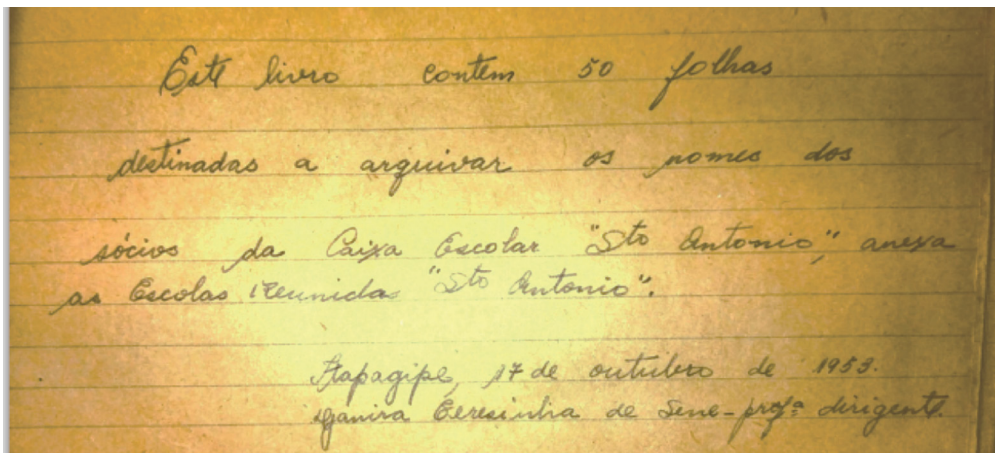 Este livro contem 50 folhas
destinadas a arquivar os nomes dos
sócios da Caixa Escolar "Sto Antonio", anexa
as Escolas Reunidas "Sto Antonio".
Itapagipe, 17 de outubro de 1953.
Teresinha de Sene - profª dirigente.